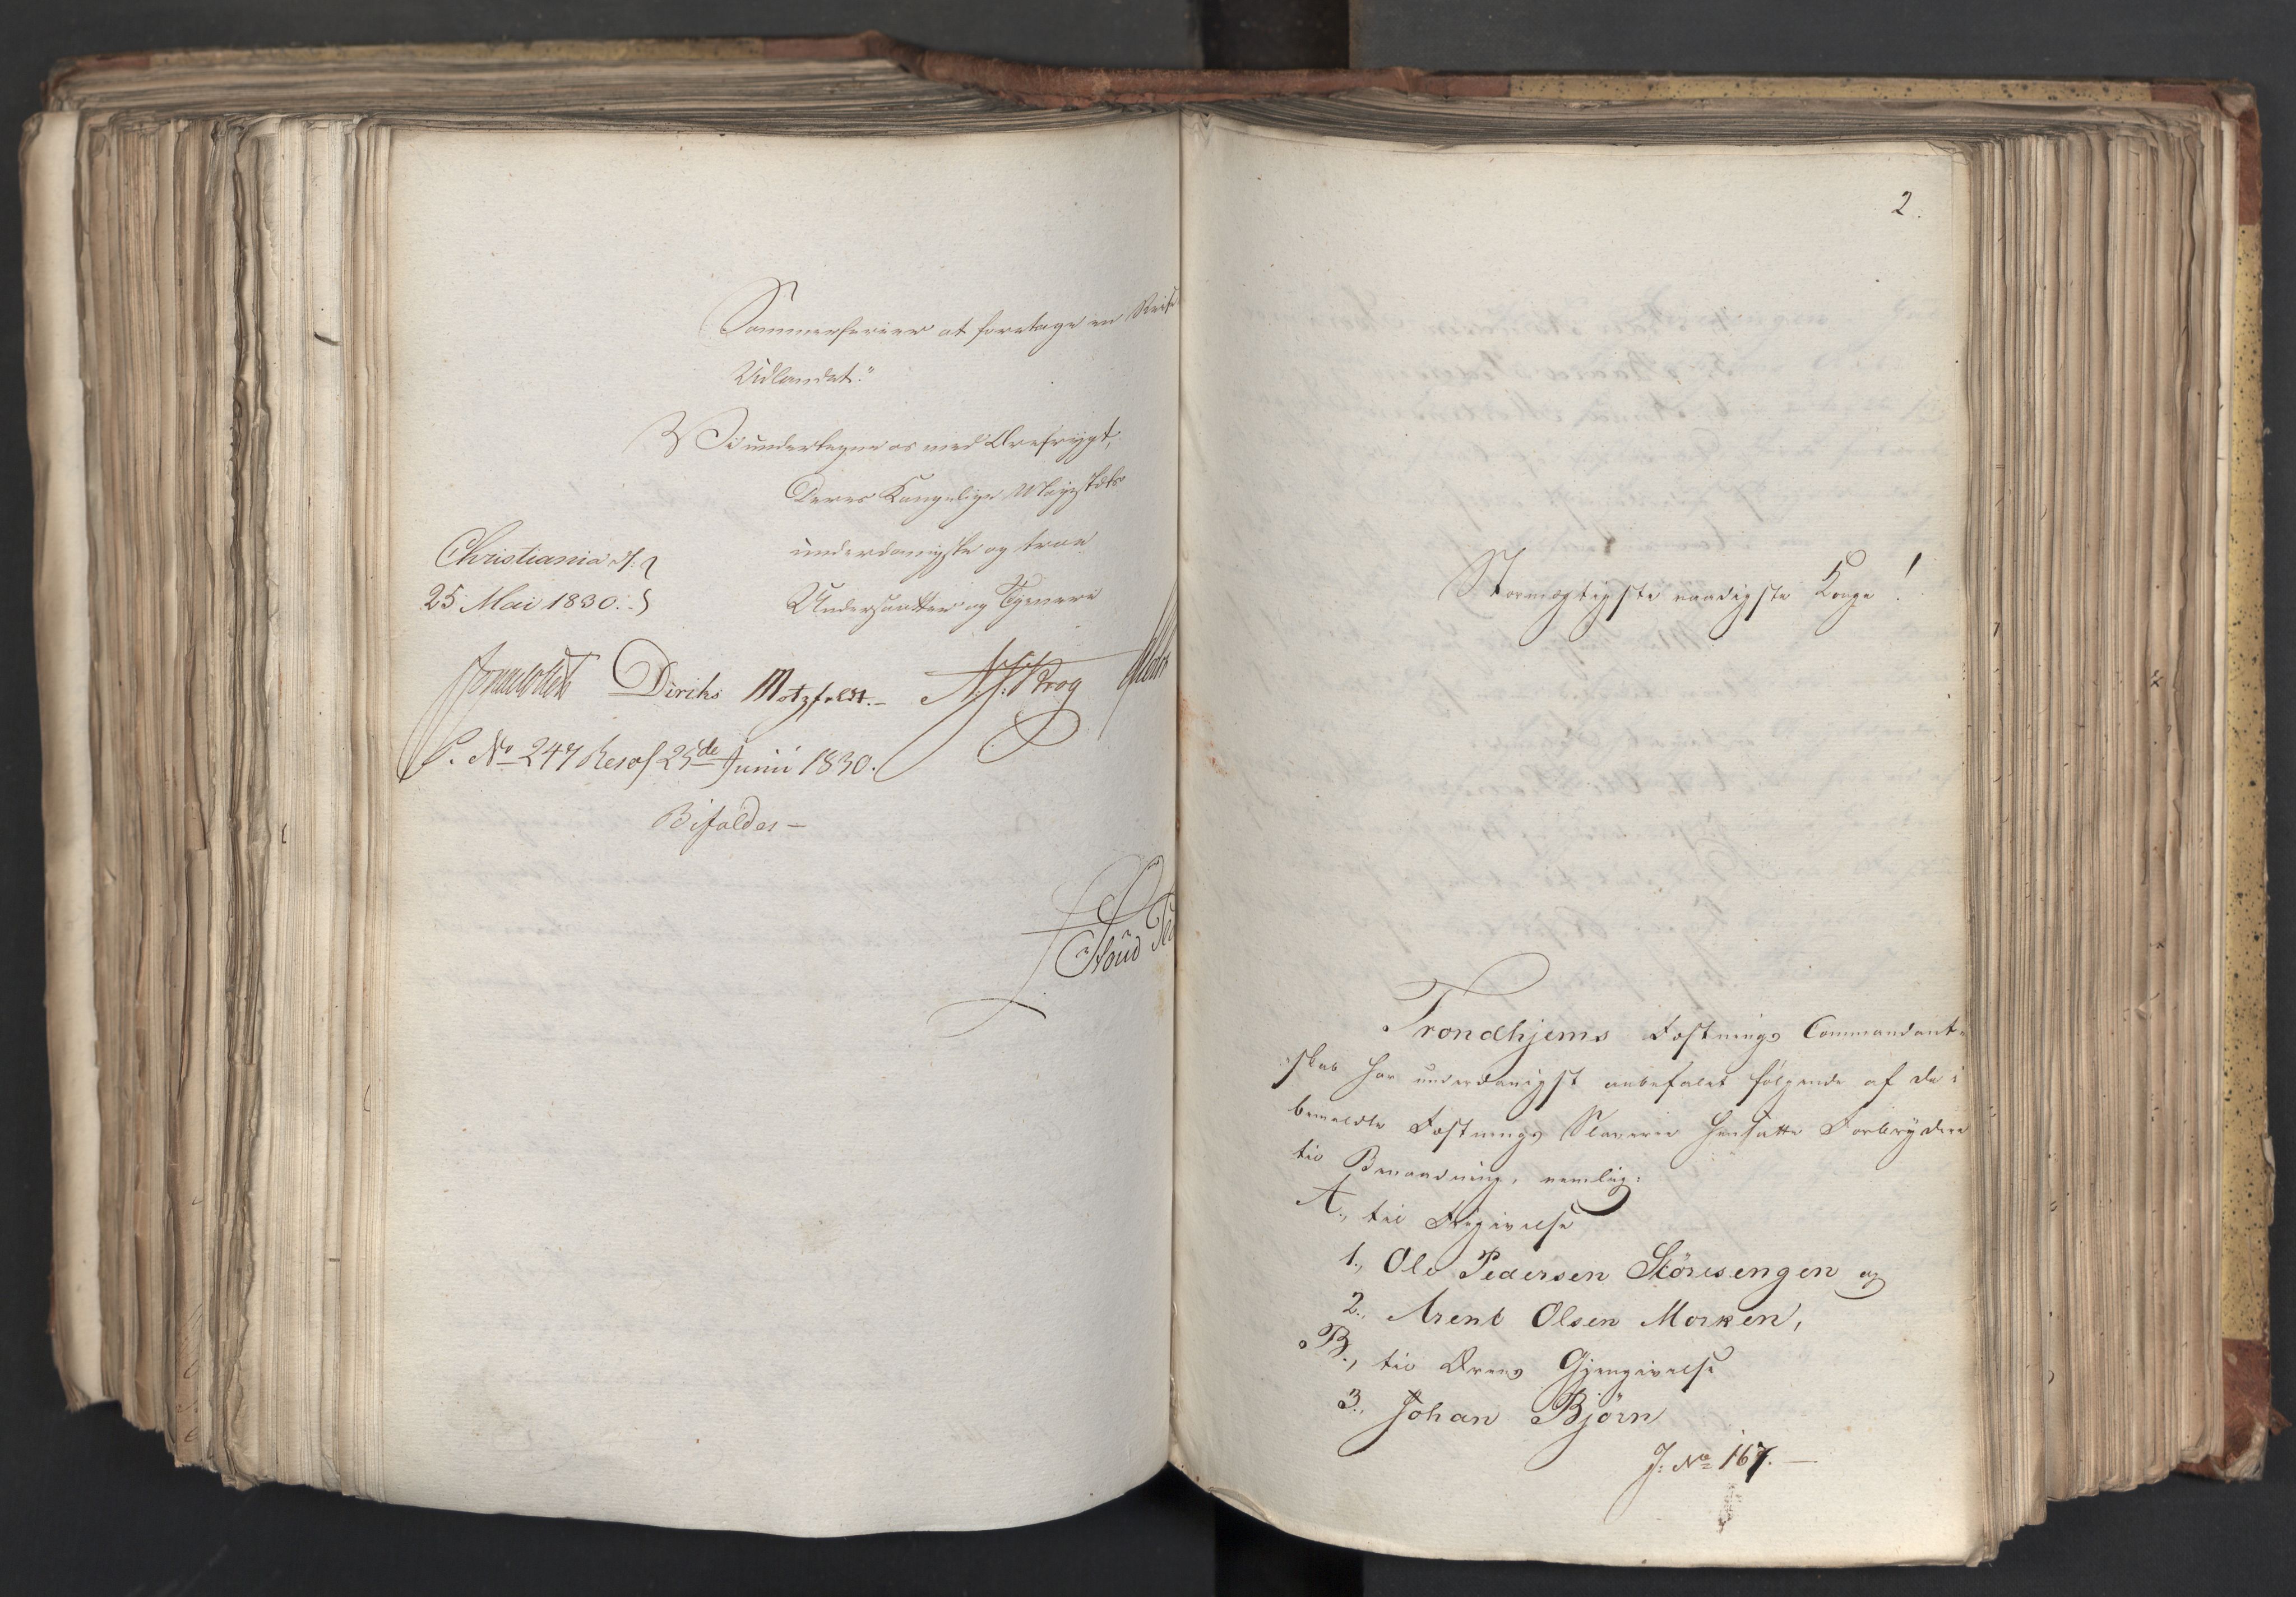 Sommerferier at foretage en Reise
Udlandet."
Vi undertegne os med Ærefrygt,
Deres Kongelige Majestæts
underdanigste og troe
Undersaatter og Tjenere
Christiania d:
25 Mai 1830.
Diriks Motzfeldt.- Krog
P. No 247 Resol 23de Junii 1830.
Bifaldes -
2.
Stormægtigste naadigste Konge!
Trondhjems Fæstnings Commandant-
skab har underdanigst anbefalet følgende af de i
bemeldte Fæstnings Slaverie hensatte Forbrydere
til Benaadning, nemlig:
A., til Frigivelse
1., Ole Pedersen Störesengen og
2., Arent Olsen Morken,
B., til Ærens Gjengivelse
3., Johan Björn
J: No 167. -